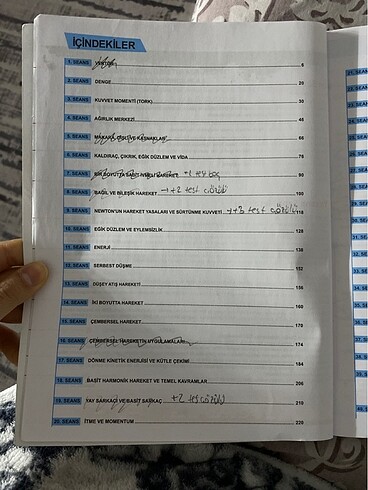 İÇİNDEKİLER
1. SEANS VEKTÖR 6
2. SEANS DENGE 20
3. SEANS KUVVET MOMENTİ (TORK) 30
4. SEANS AĞIRLIK MERKEZİ 46
5. SEANS MAKARA, DİŞLİ VE KASNAKLAR 66
6. SEANS KALDIRAÇ, ÇIKRIK, EĞİK DÜZLEM VE VİDA 76
7. SEANS BİR BOYUTTA SABİT İVMELİ HAREKET +1 test boş 90
8. SEANS BAĞIL VE BİLEŞİK HAREKET → +2 test çözüldü 100
9. SEANS NEWTON'UN HAREKET YASALARI VE SÜRTÜNME KUVVETİ → +3 test çözüldü 118
10. SEANS EĞİK DÜZLEM VE EYLEMSİZLİK 128
11. SEANS ENERJİ 138
12. SEANS SERBEST DÜŞME 152
13. SEANS DÜŞEY ATIŞ HAREKETİ 160
14. SEANS İKİ BOYUTTA HAREKET 156
15. SEANS ÇEMBERSEL HAREKET 170
16. SEANS ÇEMBERSEL HAREKETİN UYGULAMALARI 174
17. SEANS DÖNME KİNETİK ENERJİSİ VE KÜTLE ÇEKİMİ 184
18. SEANS BASİT HARMONİK HAREKET VE TEMEL KAVRAMLAR 206
19. SEANS YAY SARKACI VE BASİT SARKAÇ +2 test çözüldü 210
20. SEANS İTME VE MOMENTUM 220